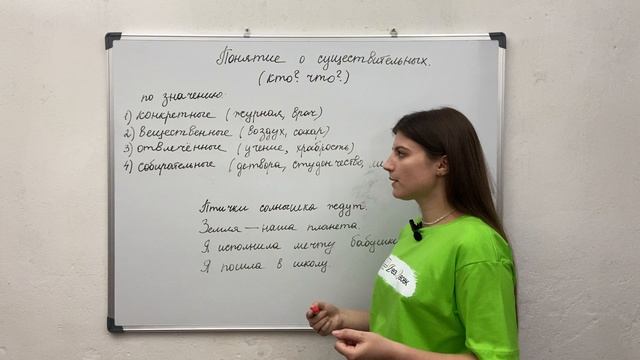 Понятие о существительных.
(кто? что?)
по значению:
1) конкретные (журнал, врач)
2) вещественные (воздух, сахар)
3) отвлечённые (учение, храбрость)
4) собирательные (детвора, студенчество,
Птички солнышка ждут.
Земля — наша планета.
Я исполнила мечту бабушки
Я пошла в школу.